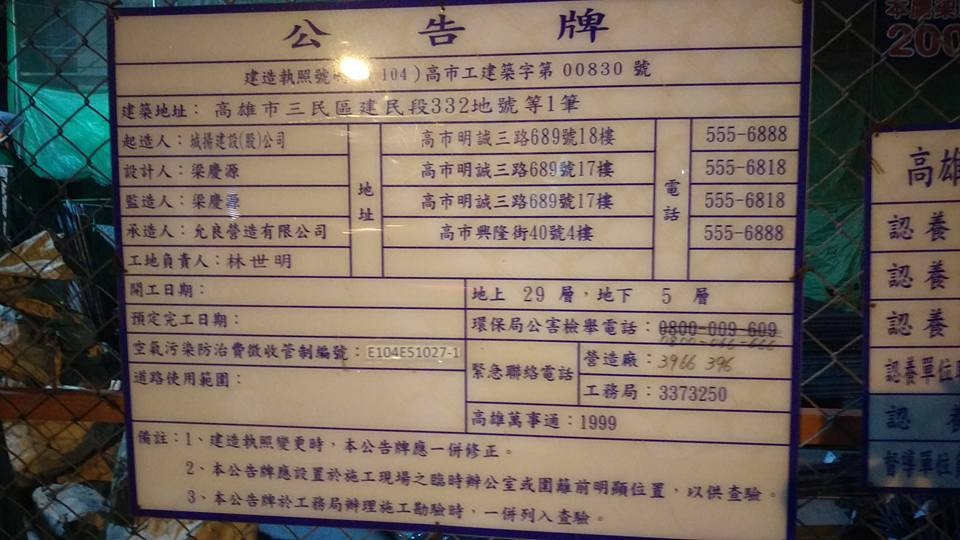 公告牌
建造執照號 104)高市工建築字第 00830 號
建築地址：高雄市三民區建民段332地號等1筆
起造人：城揚建設(股)公司 地址 高市明誠三路689號18樓 電話 555-6888
設計人：梁慶源 高市明誠三路689號17樓 555-6818
監造人：梁慶源 高市明誠三路689號17樓 555-6818
承造人：允良營造有限公司 高市興隆街40號4樓 555-6888
工地負責人：林世明
開工日期： 地上 29 層，地下 5 層
預定完工日期： 環保局公害檢舉電話：0800-009-609
0800-066-666
空氣污染防治費徵收管制編號：E104ES1027-1 緊急聯絡電話 營造廠：3966 396
道路使用範圍： 工務局：3373250
高雄萬事通：1999
備註：1、建造執照變更時，本公告牌應一併修正。
2、本公告牌應設置於施工現場之臨時辦公室或圍籬前明顯位置，以供查驗。
3、本公告牌於工務局辦理施工勘驗時，一併列入查驗。
200
高雄
認養
認養
認養
認養單位
認養
督導單位